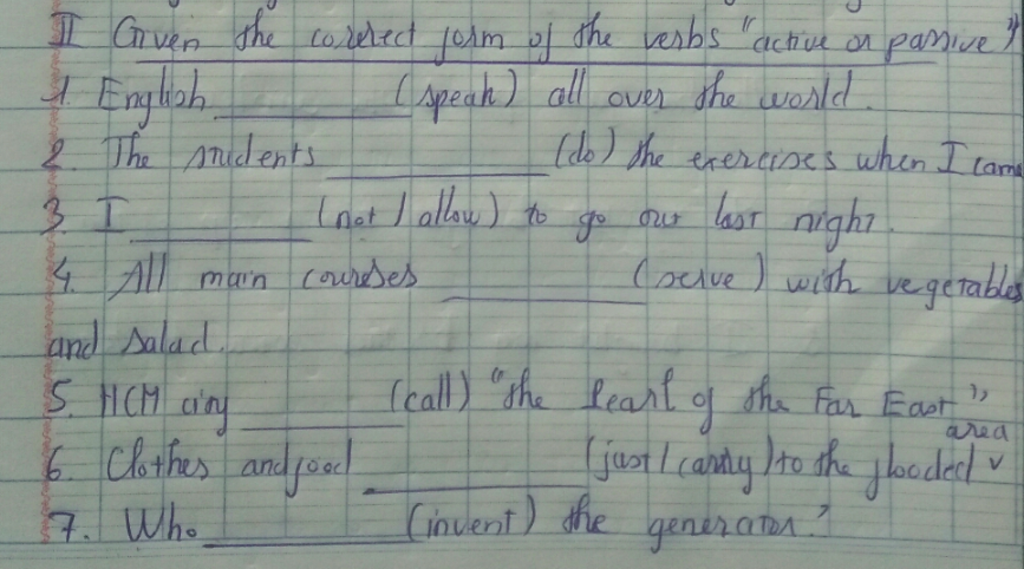 II Given the correct form of the verbs "active or passive"
1. English ________ (speak) all over the world.
2. The students ________ (do) the exercises when I came
3. I ________ (not / allow) to go out last night.
4. All main courses ________ (serve) with vegetables
and salad.
5. HCM city ________ (call) "the Pearl of the Far East"
area
6. Clothes and food ________ (just / carry) to the flooded ✓
7. Who ________ (invent) the generator?